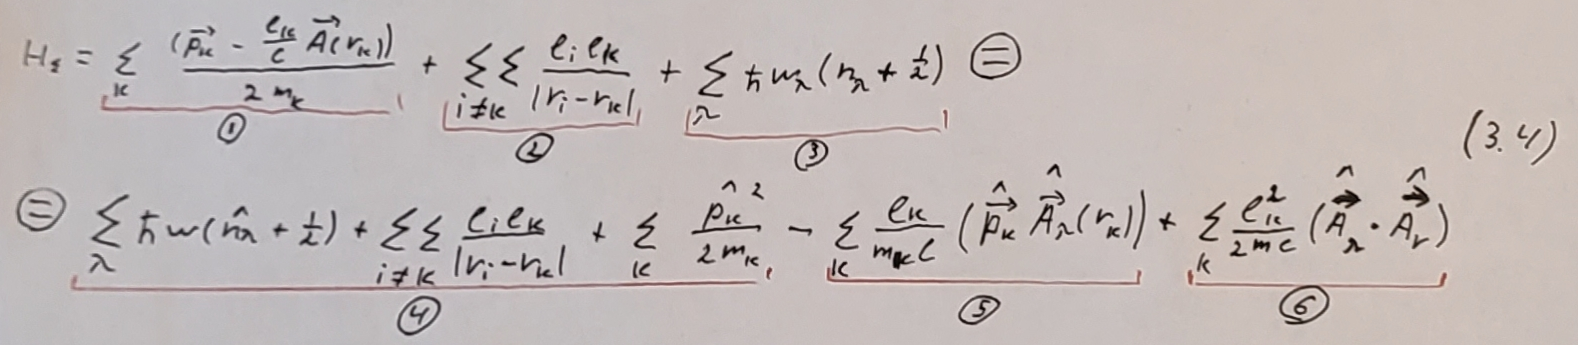 H_Σ = Σ_k (p⃗_k − e_k/c A⃗(r_k)) / 2m_k + ΣΣ_{i≠k} e_i e_k / |r_i − r_k| + Σ_λ ħω_λ(n_λ + 1/2) ⊜
① ② ③
(3.4)
⊜ Σ_λ ħω(n̂_λ + 1/2) + ΣΣ_{i≠k} e_i e_k / |r_i − r_k| + Σ_k p̂_k² / 2m_k − Σ_k e_k / m_k c (p⃗̂_k A⃗̂_λ(r_k)) + Σ_k e_k² / 2mc (A⃗̂_λ · A⃗̂_r)
④ ⑤ ⑥